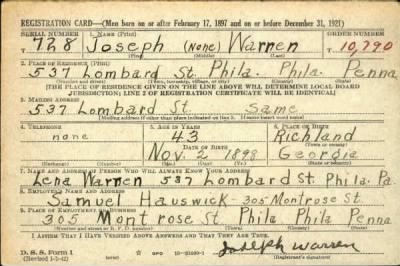 REGISTRATION CARD—(Men born on or after February 17, 1897 and on or before December 31, 1921)
SERIAL NUMBER 1. NAME (Print) ORDER NUMBER
T 728 Joseph (None) Warren T 10,790
(First) (Middle) (Last)
2. PLACE OF RESIDENCE (Print)
537 Lombard St. Phila. Phila. Penna
(Number and street) (Town, township, village, or city) (County) (State)
[THE PLACE OF RESIDENCE GIVEN ON THE LINE ABOVE WILL DETERMINE LOCAL BOARD
JURISDICTION; LINE 2 OF REGISTRATION CERTIFICATE WILL BE IDENTICAL]
3. MAILING ADDRESS
537 Lombard St. Same
[Mailing address if other than place indicated on line 2. If same insert word same]
4. TELEPHONE 5. AGE IN YEARS 6. PLACE OF BIRTH
none 43 Richland
DATE OF BIRTH (Town or county)
Nov. 2 1898 Georgia
(Exchange) (Number) (Mo.) (Day) (Yr.) (State or country)
7. NAME AND ADDRESS OF PERSON WHO WILL ALWAYS KNOW YOUR ADDRESS
Lena Warren 537 Lombard St. Phila. Pa
8. EMPLOYER'S NAME AND ADDRESS
Samuel Hauswick - 305 Montrose St.
9. PLACE OF EMPLOYMENT OR BUSINESS
305 Montrose St. Phila Phila Penna
(Number and street or R. F. D. number) (Town) (County) (State)
I AFFIRM THAT I HAVE VERIFIED ABOVE ANSWERS AND THAT THEY ARE TRUE.
D. S. S. Form 1 GPO Joseph Warren
(Revised 1-5-42) (Registrant's signature)